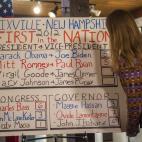 DIXVILLE NEW HAMPSHIRE
FIRST IN THE NATION
2012
PRESIDENT & VICE PRESIDENT
Barack Obama & Joe Biden
Mitt Romney & Paul Ryan
Virgil Goode & James Clymer
Gary Johnson
CONGRESS
GOVERNOR
Charles Bass
Maggie Hassan
Ovide Lamontagne
Hardy Macia
John J. Babiarz